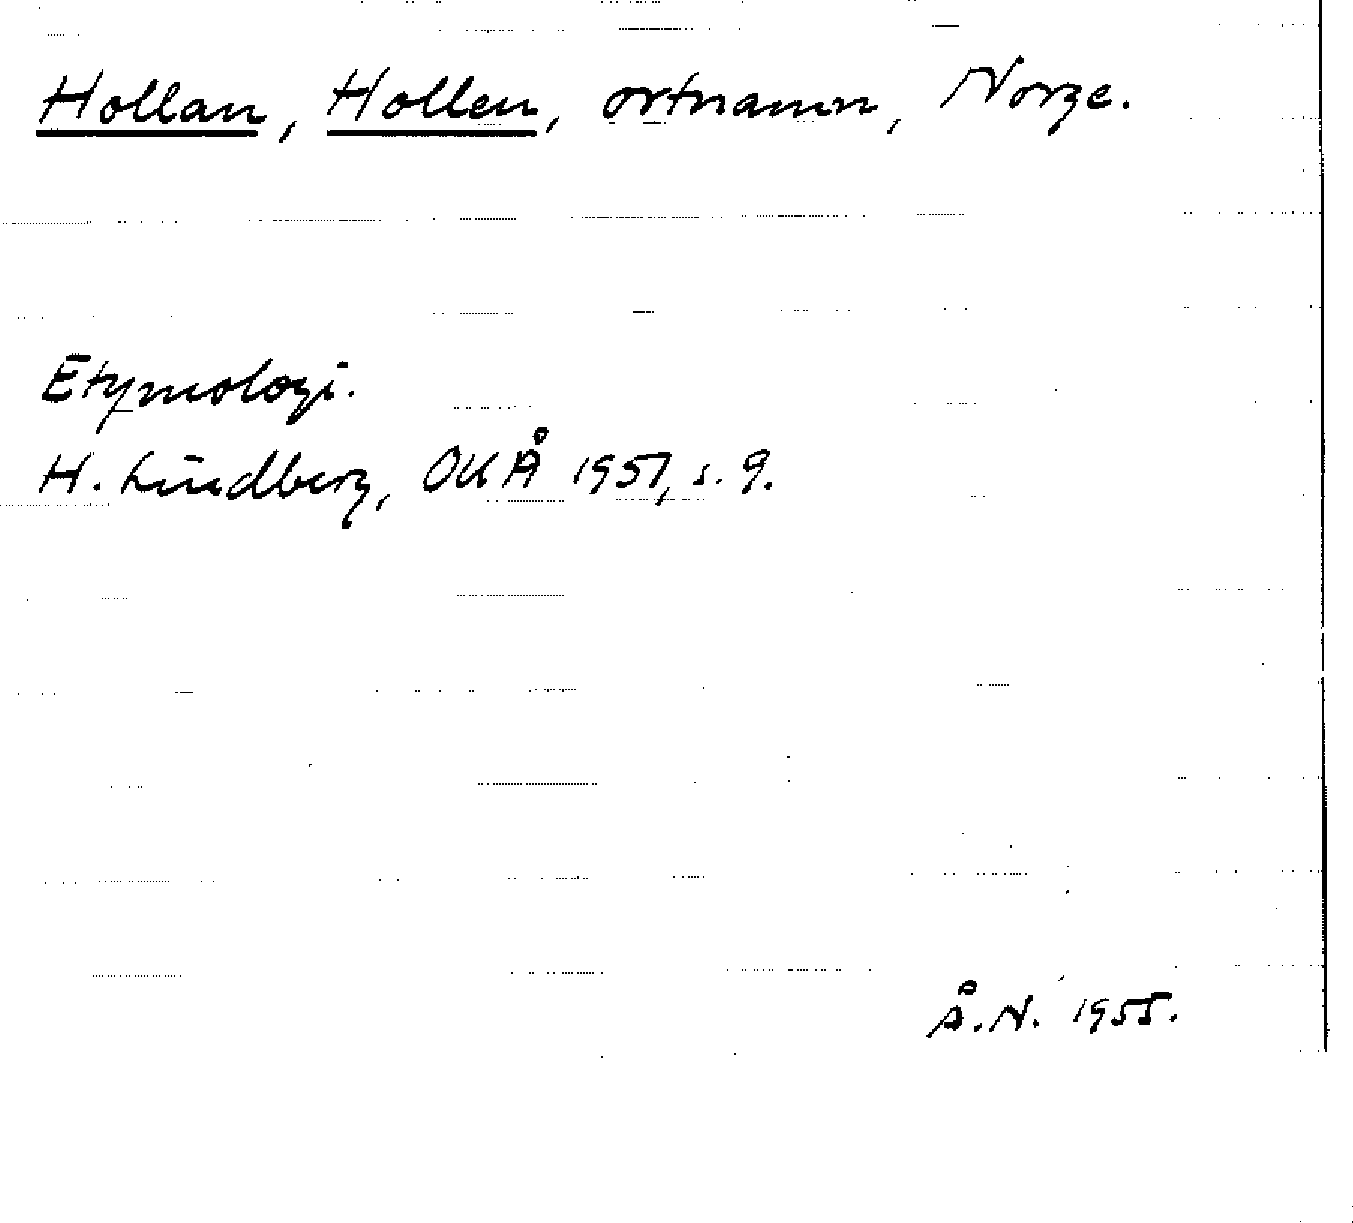 Hollan, Hollen, ortnamn, Norge.
Etymologi.
H. Lindberg, OUÅ 1951, s. 9.
Å.N. 1955.